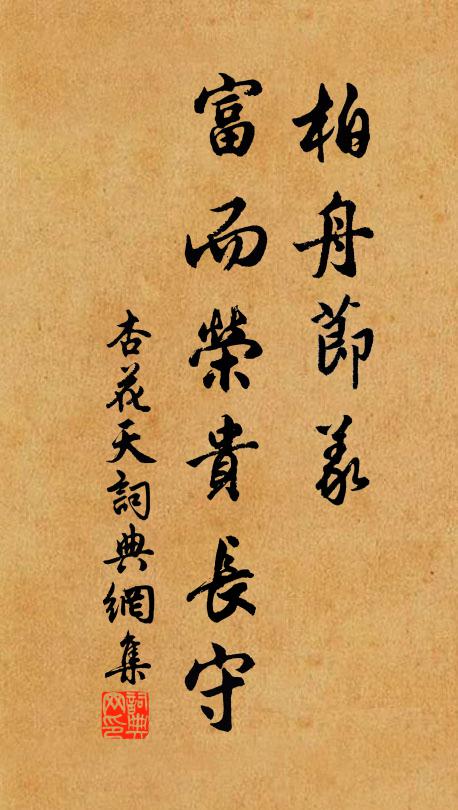 柏舟節義
富而榮貴長守
杏花天詞典網集
詞典
网印